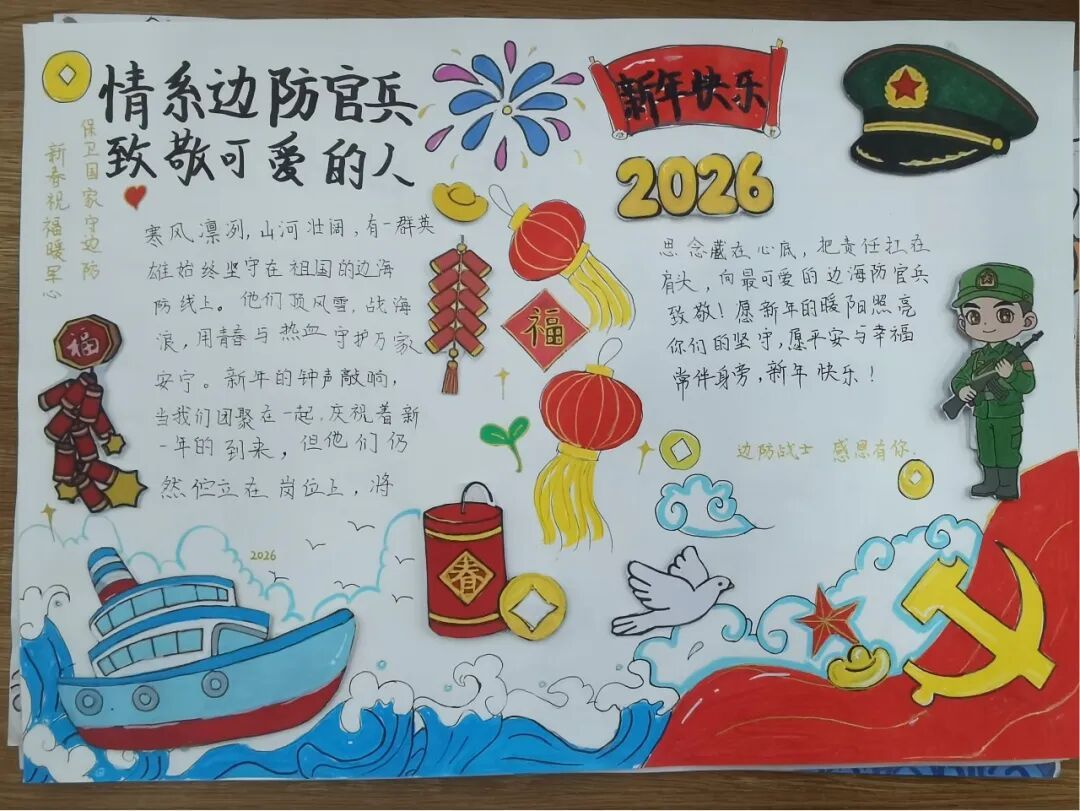 情系边防官兵
致敬可爱的人
保卫国家守边防
新春祝福暖军心
寒风凛冽,山河壮阔,有一群英
雄始终坚守在祖国的边海
防线上。他们顶风雪,战海
浪,用青春与热血守护万家
安宁。新年的钟声敲响,
当我们团聚在一起,庆祝着新
一年的到来,但他们仍
然伫立在岗位上,将
新年快乐
2026
思念藏在心底,把责任扛在
肩头,向最可爱的边海防官兵
致敬!愿新年的暖阳照亮
你们的坚守,愿平安与幸福
常伴身旁,新年快乐!
边防战士 感恩有你.
福
福
春
2026